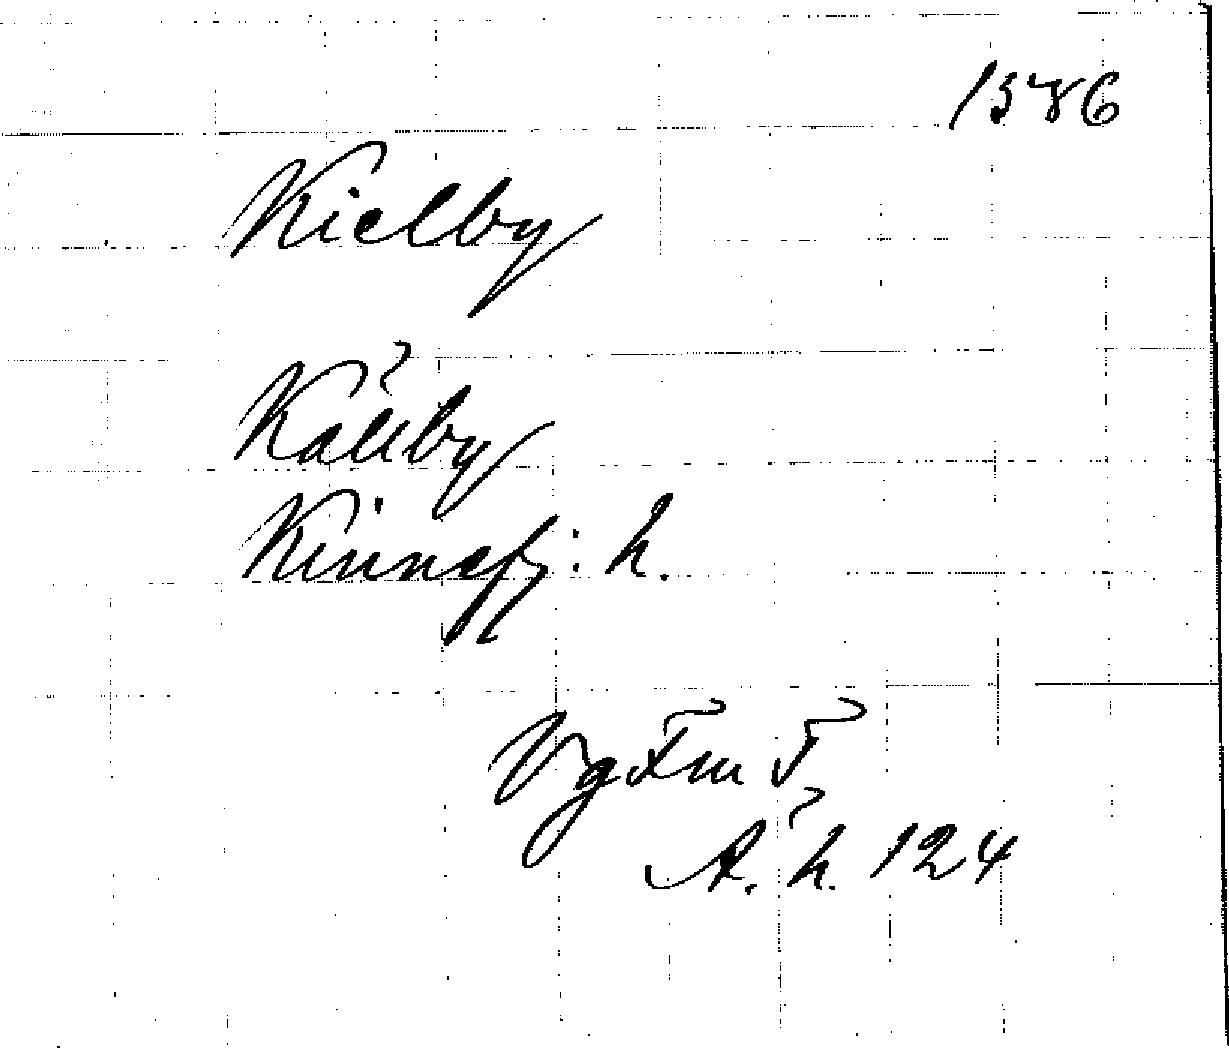 1586
Kielby
Källby
Kinnefj: h.
VgFmT
A. h. 124